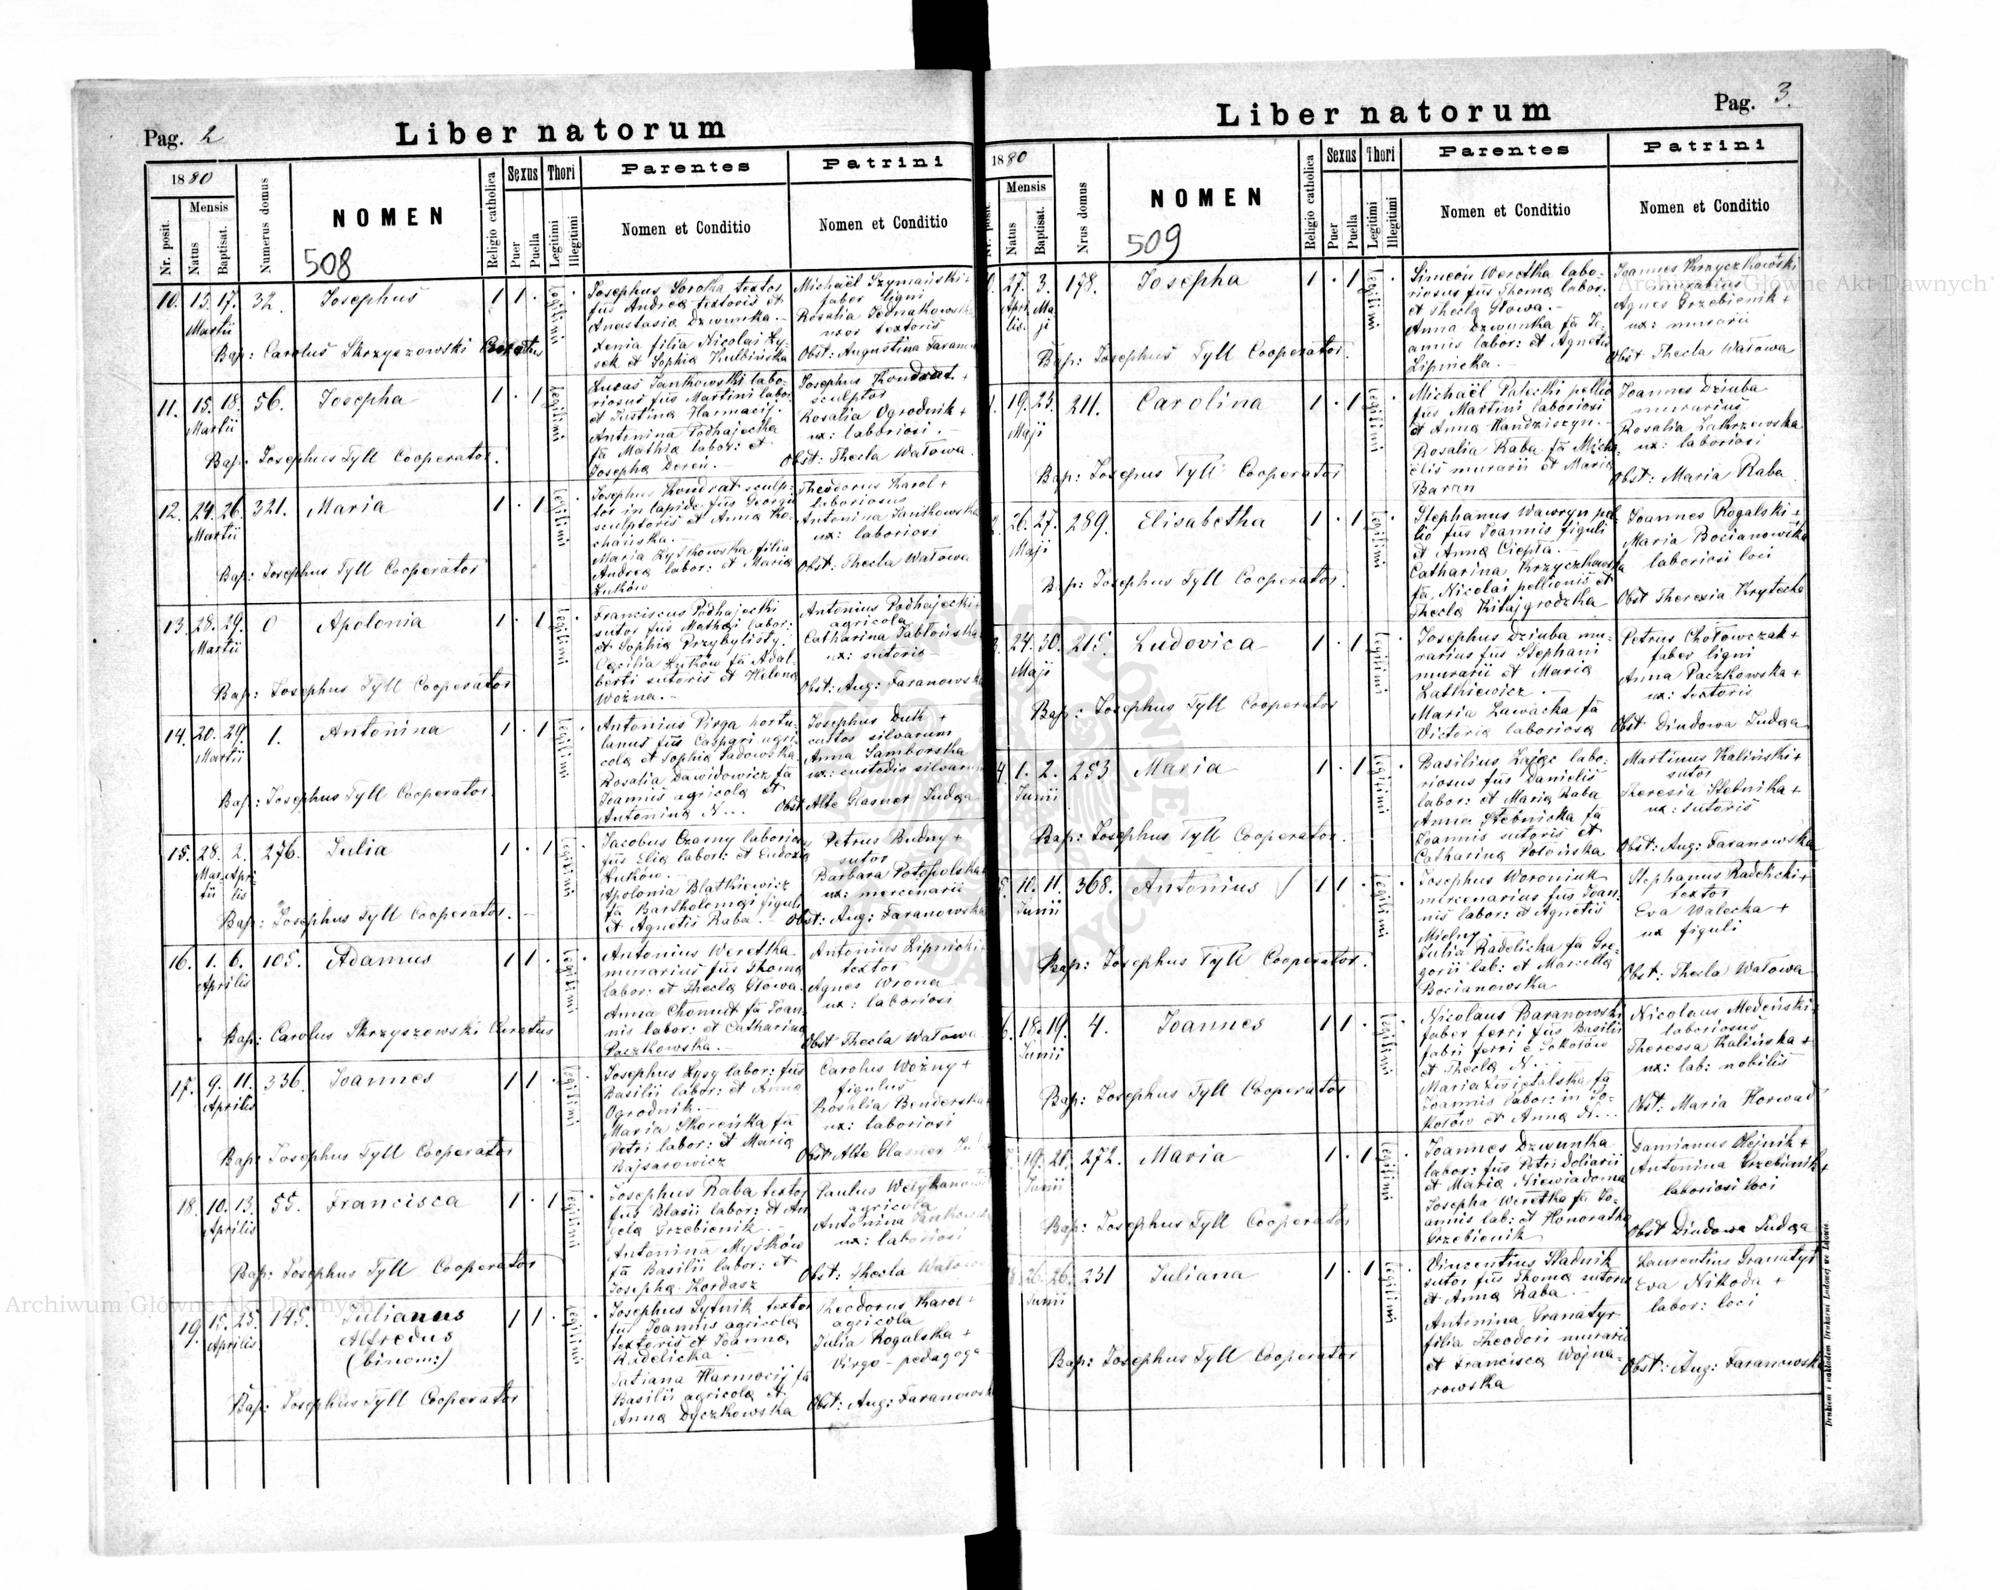 Pag. 2
Liber natorum
1880
Nr. posit.
Mensis
Natus
Baptisat.
Numerus domus
NOMEN
508
Religio catholica
Sexus
Puer
Puella
Thori
Legitimi
Illegitimi
Parentes
Nomen et Conditio
Patrini
Nomen et Conditio
10. 15. 17. Martii 32. Josephus 1 1 · Legitimi ·
Josephus Sorotka textor
fūs Andreæ textoris et
Anastasia Dzwunka. –
Xenia filia Nicolai Ły-
sek et Sophia Kulbińska
Michaël Szymański +
faber ligni
Rosalia Jednakowska
uxor textoris
Obst: Augustina Faranow
Bap: Carolus Skrzyszowski Curatus
11. 15. 18. Martii 56. Josepha 1 · 1 Legitimi ·
Lucas Jankowski labo-
riosus fūs Martini labor
et Justina Harmacij. –
Antonina Podhajecka
fa Mathiæ labor: et
Josepha Dereń. –
Josephus Kondrat. +
sculptor
Rosalia Ogrodnik +
ux: laboriosi. –
Obst: Thecla Watowa.
Bap: Josephus Tyll Cooperator.
12. 24. 26. Martii 321. Maria 1 · 1 Legitimi ·
Josephus Kondrat sculp-
tor in lapide fūs Georgii
sculptoris et Anna Ko-
chańska. –
Maria Żytkowska filia
Andreæ labor: et Maria
Łuków
Theodorus Karol +
laboriosus
Antonina Jankowska
ux: laboriosi
Obst: Thecla Watowa
Bap: Josephus Tyll Cooperator
13. 28. 29. Martii 0 Apolonia 1 · 1 Legitimi ·
Franciscus Podhajecki
sutor fūs Mathæi labor:
et Sophia Przybylisty.
Cæcilia Łuków fa Adal-
berti sutoris et Helena
Woźna. –
Antonius Podhajecki +
agricola
Catharina Jabłońska
ux: sutoris
Obst: Aug: Faranowska
Bap: Josephus Tyll Cooperator
14. 20. 29. Martii 1. Antonina 1 · 1 Legitimi ·
Antonius Pirga hortu-
lanus fūs Caspari agri-
colæ et Sophia Sadowska.
Rosalia Dawidowicz fa
Joannis agricolæ et
Antonina N...
Josephus Duk +
custos silvarum
Anna Samborska
ux: custodis silvarum
Obst Alte Glasner Judæa
Bap: Josephus Tyll Cooperator.
15. 28. Martii 2. Aprilis 276. Julia 1 · 1 Legitimi
Jacobus Czarny laborios
fūs Eliæ labor: et Eudoxia
Łuków. –
Apolonia Blatkiewicz
fa Bartholomæi figuli
et Agnetis Raba. –
Petrus Budny +
sutor
Barbara Potopolska +
ux: mercenarii
Obst: Aug: Faranowska
Bap: Josephus Tyll Cooperator. –
16. 1. 6. Aprilis 105. Adamus 1 1 · Legitimi ·
Antonius Weretka
murarius fūs Thomæ
labor: et Thecla Głowa.
Anna Chomut fa Joan-
nis labor: et Catharina
Paczkowska. –
Antonius Lipnicki +
textor
Agnes Wrona
ux: laboriosi
Obst Thecla Watowa
Bap: Carolus Skrzyszowski Curatus
17. 9. 11. Aprilis 336. Joannes 1 1 · Legitimi
Josephus Łysy labor: fūs
Basilii labor: et Anna
Ogrodnik. –
Maria Skoreńka fa
Petri labor: et Maria
Bajsarowicz
Carolus Woźny +
figulus
Rosalia Benderska +
ux: laboriosi
Obst: Alte Glasner
Bap: Josephus Tyll Cooperator
18. 10. 13. Aprilis 55. Francisca 1 · 1 Legitimi ·
Josephus Raba textor
fūs Blasii labor: et An
gela Grzebienik. –
Antonina Myśków
fa Basilii labor: et
Josepha Kordasz
Paulus
agricola
Antonina Jankowska
ux: laboriosi
Obst: Thecla Watowa
Bap: Josephus Tyll Cooperator
19. 15. 25. Aprilis 145. Julianus 1 1 · Legitimi
Alfredus
(binom:)
Josephus Sytnik textor
fūs Joannis agricolæ
textoris et Joanna
Radelicka. –
Tatiana Harmocij fa
Basilii agricolæ et
Anna Dyczkowska
Theodorus Karol +
agricola
Julia Rogalska +
Virgo - pedagoga
Obst: Aug: Faranowska
Bap: Josephus Tyll Cooperator
Pag. 3.
Liber natorum
1880
Nr. posit.
Mensis
Natus
Baptisat.
Nrus domus
NOMEN
509
Religio catholica
Sexus
Puer
Puella
Thori
Legitimi
Illegitimi
Parentes
Nomen et Conditio
Patrini
Nomen et Conditio
27. Aprilis 3. Maji 178. Josepha 1 · 1 Legitimi ·
Simeon Weretka labo-
riosus fūs Thomæ labor:
et Thecla Głowa. –
Anna Dzwunka fa Jo-
annis labor: et Agnetis
Lipnicka. –
Joannes Krzyczkowski
murarius
Agnes Grzebienik +
ux: murarii
Obst Thecla Watowa
Bap: Josephus Tyll Cooperator.
19. 23. Maji 211. Carolina 1 · 1 Legitimi ·
Michaël Palecki pellio
fūs Martini laboriosi
et Anna Handziszyn. –
Rosalia Raba fa Micha-
ëlis murarii et Maria
Baran
Joannes Dziuba
murarius
Rosalia Zakrzewska
ux: laboriosi
Obst: Maria Raba
Bap: Josephus Tyll Cooperator
26. 27. Maji 289. Elisabetha 1 · 1 Legitimi ·
Stephanus Wawryn pel-
lio fūs Joannis figuli
et Anna Ciepła. –
Catharina Krzyczkowska
fa Nicolai pellionis et
Thecla Kitajgrodzka
Joannes Rogalski +
Maria Bocianowska
laboriosi loci
Obst Theresia Krytecka
Bap: Josephus Tyll Cooperator.
24. 30. Maji 215. Ludovica 1 · 1 Legitimi ·
Josephus Dziuba mu-
rarius fūs Stephani
murarii et Maria
Latkiewicz. –
Maria Ławacka fa
Victoria laboriosæ
Petrus Chołowczak +
faber ligni
Anna Paczkowska +
ux: textoris
Obst Dindowa Judæa
Bap: Josephus Tyll Cooperator
1. 2. Junii 253 Maria 1 · 1 Legitimi ·
Basilius Zając labo-
riosus fūs Danielis
labor: et Maria Raba
Anna Stebnicka fa
Joannis sutoris et
Catharina Potońska
Martinus Kaliński +
sutor
Theresia Sletnika +
ux: sutoris
Obst: Aug: Faranowska
Bap: Josephus Tyll Cooperator.
10. 11. Junii 368. Antonius 1 1 · Legitimi ·
Josephus Woroniuk
mercenarius fūs Joan-
nis labor: et Agnetis
Mielny. –
Julia Radelicka fa Gre-
gorii lab: et Marcella
Bocianowska
Stephanus Radelicki +
textor
Eva Walecka +
ux figuli
Obst: Thecla Watowa
Bap: Josephus Tyll Cooperator.
18. 19. Junii 4. Joannes 1 1 · Legitimi ·
Nicolaus Baranowski
faber ferri fūs Basilii
fabri ferri e Sokołów
et Thecla N. –
Maria Świętalska fa
Joannis labor: in So-
kołów et Anna N. . .
Nicolaus Medeński +
laboriosus
Theressa Kalińska +
ux: lab: nobilis
Obst: Maria Horwad
Bap: Josephus Tyll Cooperator
19. 21. Junii 272. Maria 1 · 1 Legitimi ·
Joannes Dzwunka
labor: fūs Petri doliarii
et Maria Niewiadoma
Josepha Weretka fa Jo-
annis lab: et Honorata
Grzebienik
Damianus Olejnik +
Antonina Grzebienik +
laboriosi loci
Obst Dindowa Judæa
Bap: Josephus Tyll Cooperator
26. 26. Junii 231 Juliana 1 · 1 Legitimi
Vincentius Sladnik
sutor fūs Thomæ sutoris
et Anna Raba. –
Antonina Granatyr
filia Theodori murarii
et Francisca Wojna-
rowska
Laurentius Granatyr
Eva Nikoda +
labor: loci
Obst: Aug: Faranowska
Bap: Josephus Tyll Cooperator
Drukiem i nakładem Drukarni Ludowej we Lwowie.
Archiwum Główne Akt Dawnych
Archiwum Główne Akt Dawnych
ARCHIWUM GŁÓWNE AKT DAWNYCH